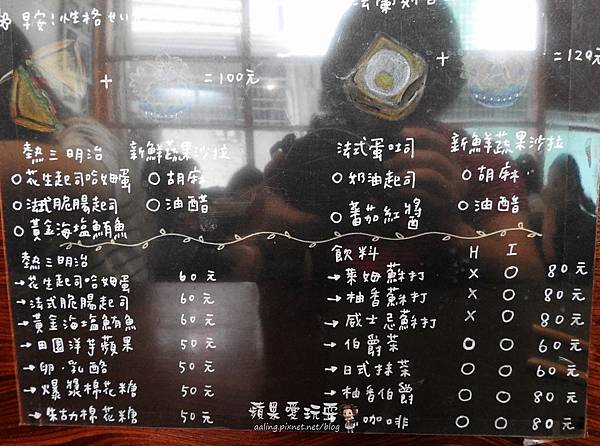 早安!性格
+ =100元
+ =120元
熱三明治 新鮮蔬果沙拉
花生起司哈姆蛋 胡麻
法式脆腸起司 油醋
黃金海塩鮪魚
法式蛋吐司 新鮮蔬果沙拉
奶油起司 胡麻
蕃茄紅醬 油醋
熱三明治
→花生起司哈姆蛋 60元
→法式脆腸起司 60元
→黃金海塩鮪魚 60元
→田園洋芋蘋果 50元
→卵·乳酪 50元
→爆漿棉花糖 50元
→朱古力棉花糖 50元
飲料 H I
→萊姆蘇打 X O 80元
→柚香蘇打 X O 80元
→威士忌蘇打 X O 80元
→伯爵茶 O O 60元
→日式抹茶 O O 80元
→柚香伯爵 O O 80元
咖啡 O O 80元
蘋果愛玩耍
aaling.pixnet.net/blog